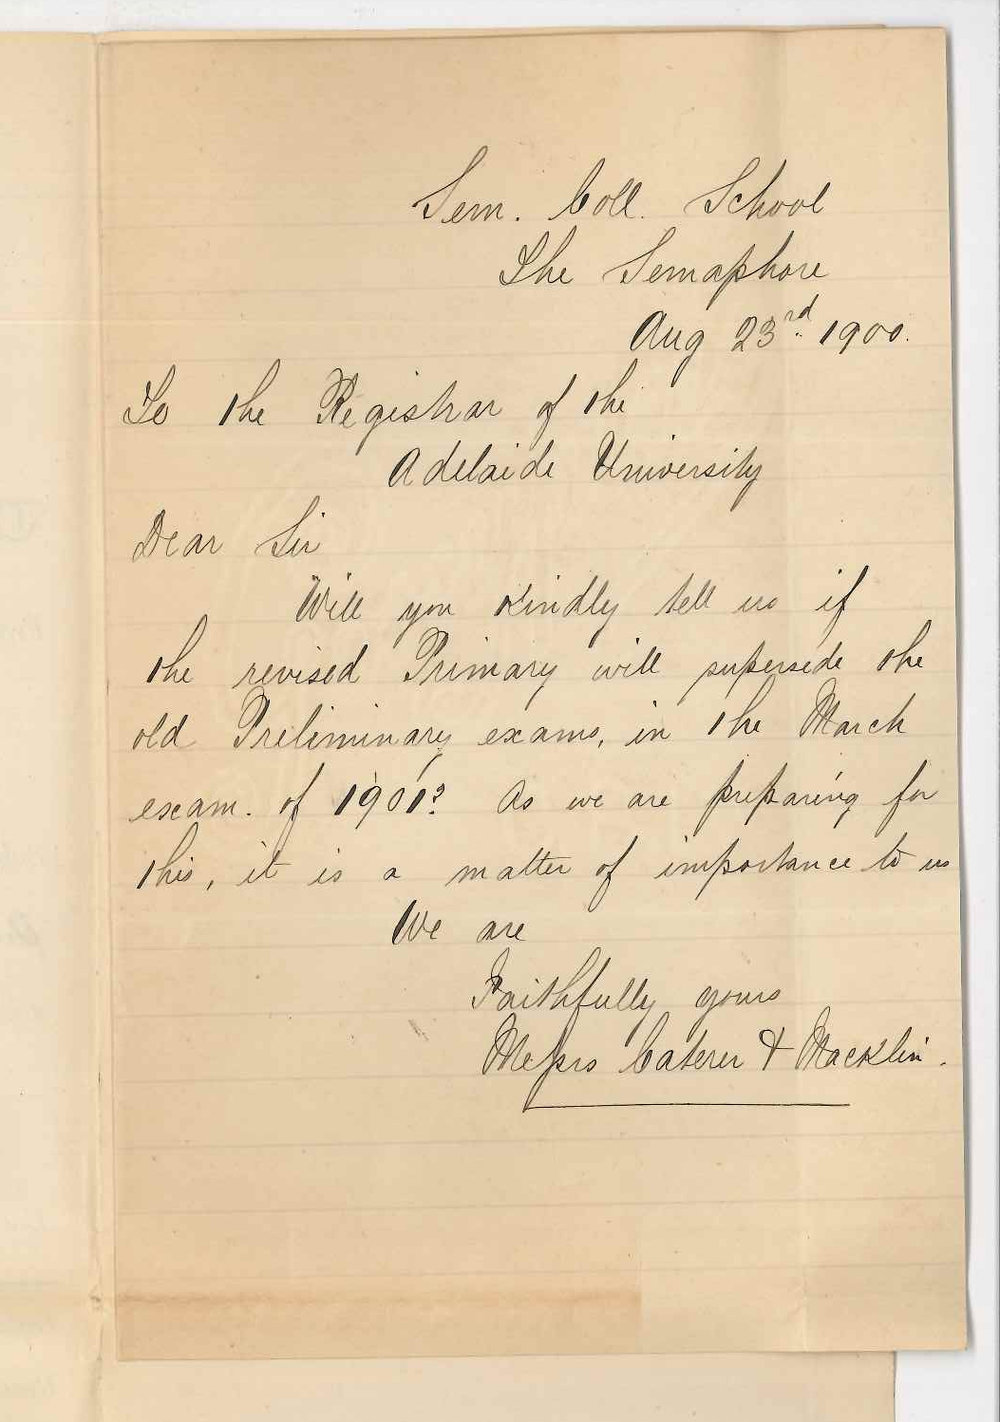 Sem. Coll. School
The Semaphore
Aug 23rd 1900.
To the Registrar of the
Adelaide University
Dear Sir
Will you kindly tell us if
the revised Primary will supersede the
old Preliminary exams, in the March
exam. of 1901? As we are preparing for
this, it is a matter of importance to us
We are
Faithfully yours
Messrs Caterer & Macklin.